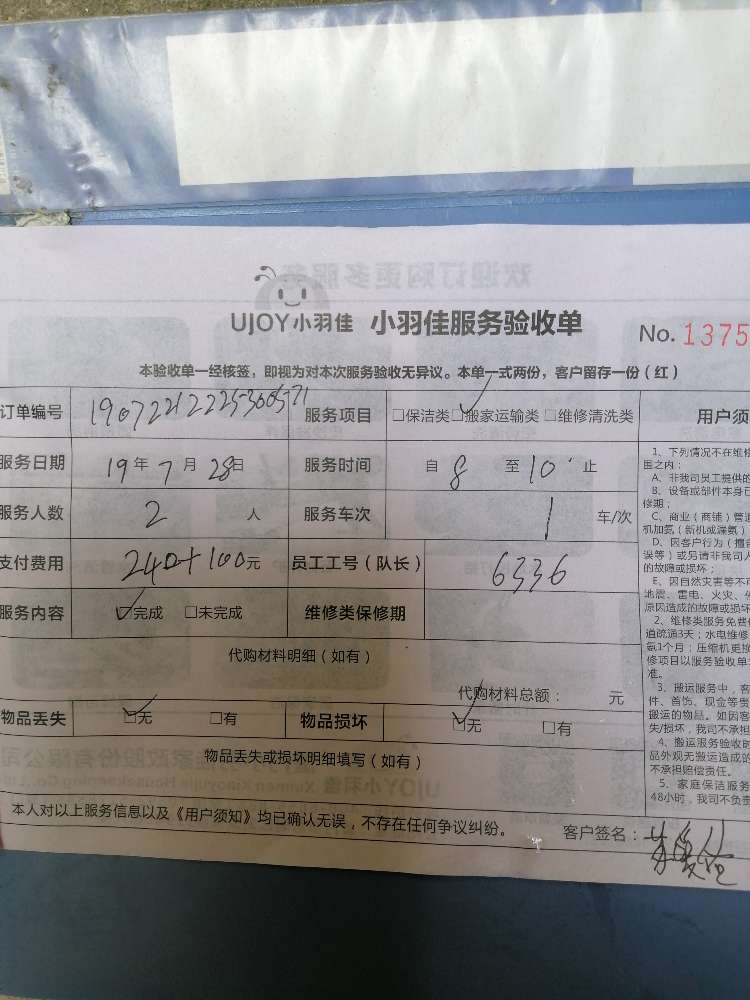 UJOY小羽佳 小羽佳服务验收单 No. 1375
本验收单一经核签，即视为对本次服务验收无异议。本单一式两份，客户留存一份（红）
订单编号 服务项目 □保洁类 ☑搬家运输类 □维修清洗类
服务日期 19年7月28日 服务时间 自8至10止
服务人数 2人 服务车次 1车/次
支付费用 240+100元 员工工号（队长） 6336
服务内容 ☑完成 □未完成 维修类保修期
代购材料明细（如有）
代购材料总额： 元
物品丢失 ☑无 □有 物品损坏 ☑无 □有
物品丢失或损坏明细填写（如有）
本人对以上服务信息以及《用户须知》均已确认无误，不存在任何争议纠纷。 客户签名：
用户须
1、下列情况不在维修
围之内：
A、非我司员工提供的
B、设备或部件本身已
修期；
C、商业（商铺）管道
机加氨（新机或漏氨）
D、因客户行为（擅自
误等）或另请非我司人
的故障或损坏；
E、因自然灾害等不可
地震、雷电、火灾、
原因造成的故障或损坏
2、维修类服务免费
道疏通3天；水电维修
氨1个月；压缩机更换
修项目以服务验收单
准。
3、搬运服务中，客
件、首饰、现金等贵
搬运的物品。如因客
失/损坏，我司不承担
4、搬运服务验收时
品外观无搬运造成的
不承担赔偿责任。
5、家庭保洁服务
48小时，我司不负责